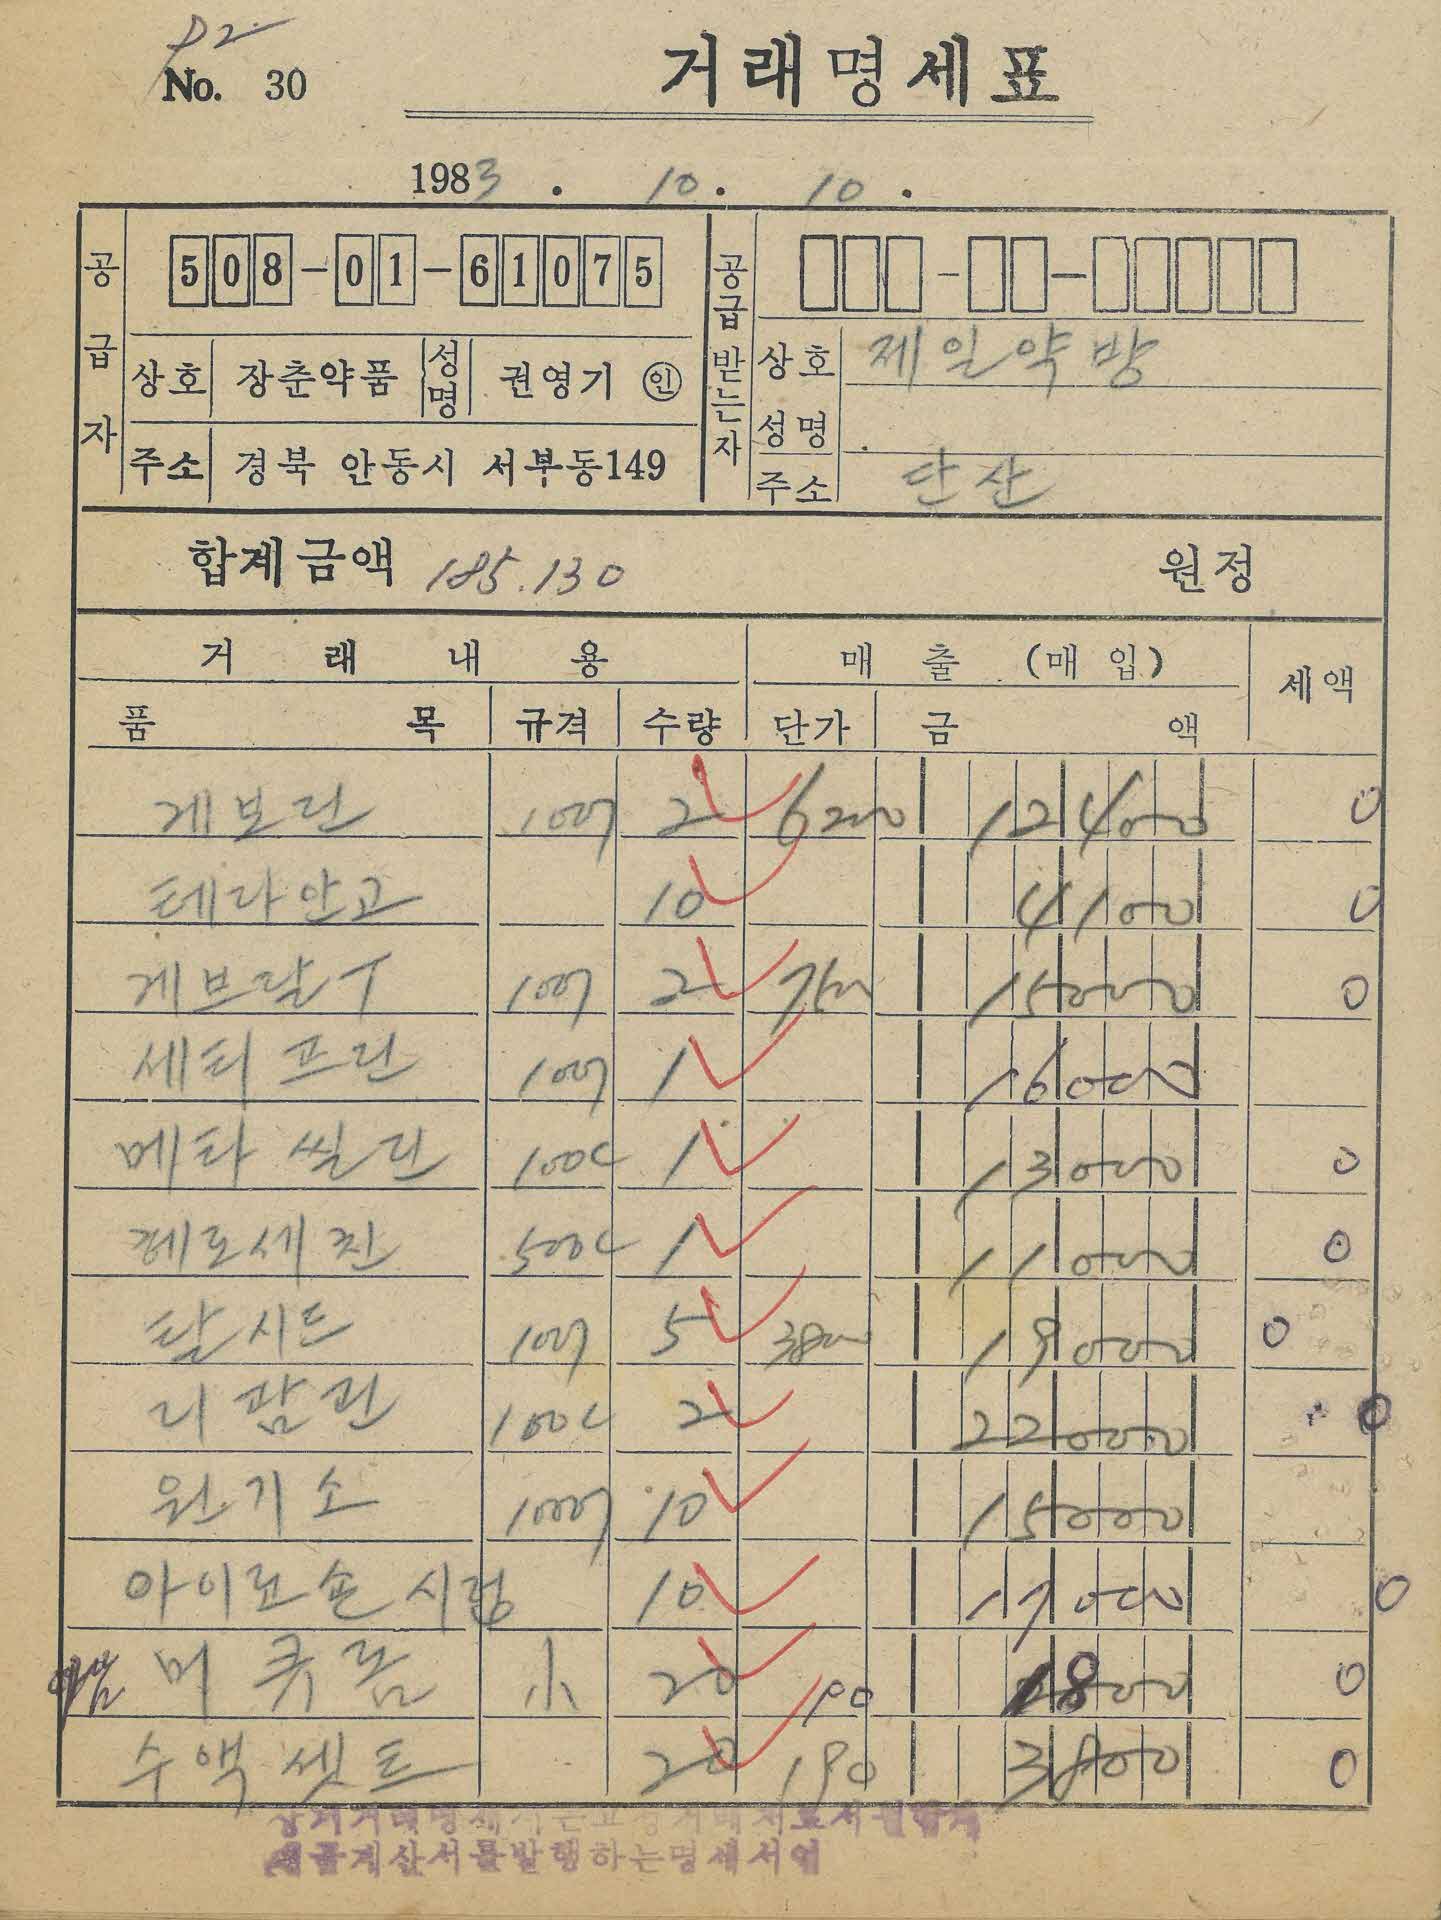 82
No. 30
거래명세표
1983 . 10 . 10 .
공급자
508-01-61075
상호 장춘약품 성명 권영기 ㊞
주소 경북 안동시 서부동149
공급받는자
상호 제일약방
성명
주소 단산
합계금액 185.130 원정
거래내용 매출(매입) 세액
품목 규격 수량 단가 금액
게보린 100T 2 6200 12400 0
테라안고 10 4100 0
게브랄T 100T 2 7500 15000 0
세티프린 100T 1 16000
메타씰린 100C 1 13000 0
헤로세친 500C 1 11000 0
탈시드 100T 5 3800 19000 0
리팜핀 100C 2 22000 0
원기소 1000T 10 15000
아이료손시럽 10 17000 0
머큐롬 小 20 190 1800 0
수액셋트 20 190 3800 0
세금계산서를발행하는명세서임